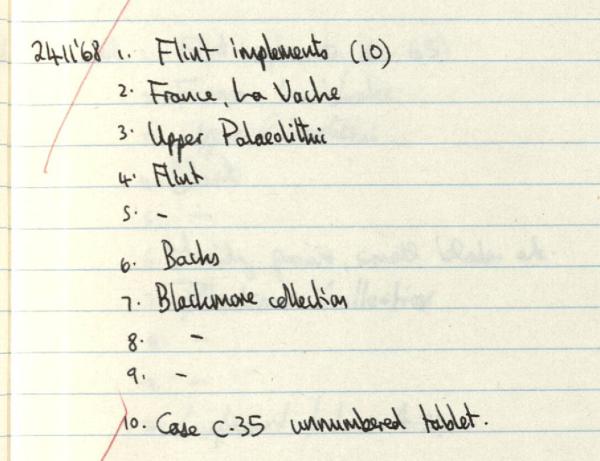 24.11'68 1. Flint implements (10)
2. France, La Vache
3. Upper Palaeolithic
4. Flint
5. -
6. Backs
7. Blackmore collection
8. -
9. -
10. Case C.35 unnumbered tablet.